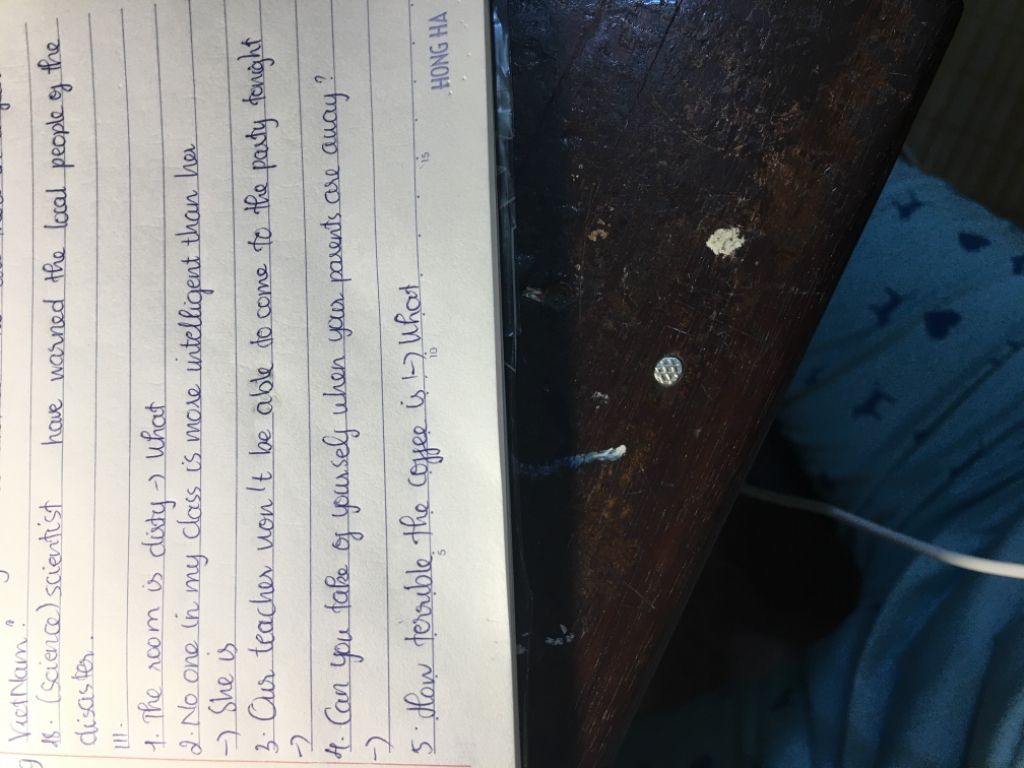 VietNam?
18. (science) scientist have warned the local people of the
disaster.
III.
1. The room is dirty -> What
2. No one in my class is more intelligent than her
-> She is
3. Our teacher won't be able to come to the party tonight
->
4. Can you take of yourself when your parents are away?
->
5. How terrible the coffee is !-> What
5 10 15
HONG HA